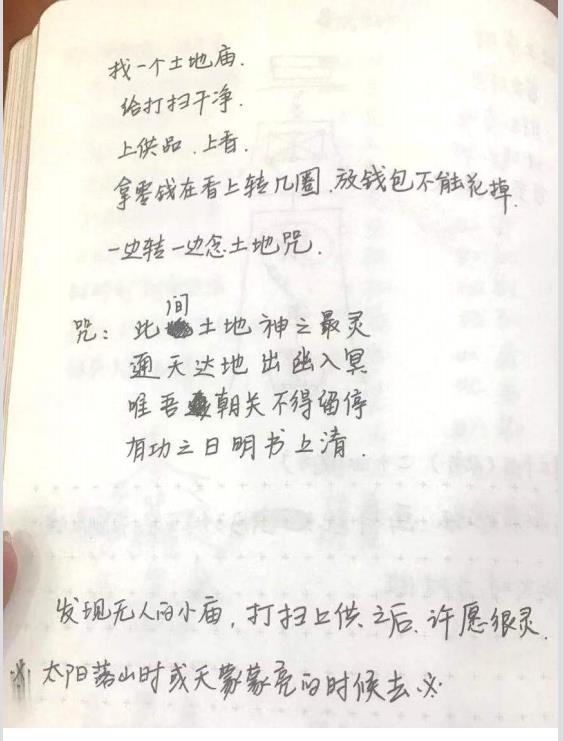 找一个土地庙.
给打扫干净.
上供品.上香.
拿零钱在香上转几圈.放钱包不能花掉.
一边转一边念土地咒.
咒：此间土地 神之最灵
通天达地 出幽入冥
唯吾朝关 不得留停
有功之日 明书上清.
发现无人的小庙，打扫上供之后.许愿很灵.
太阳落山时或天蒙蒙亮的时候去※